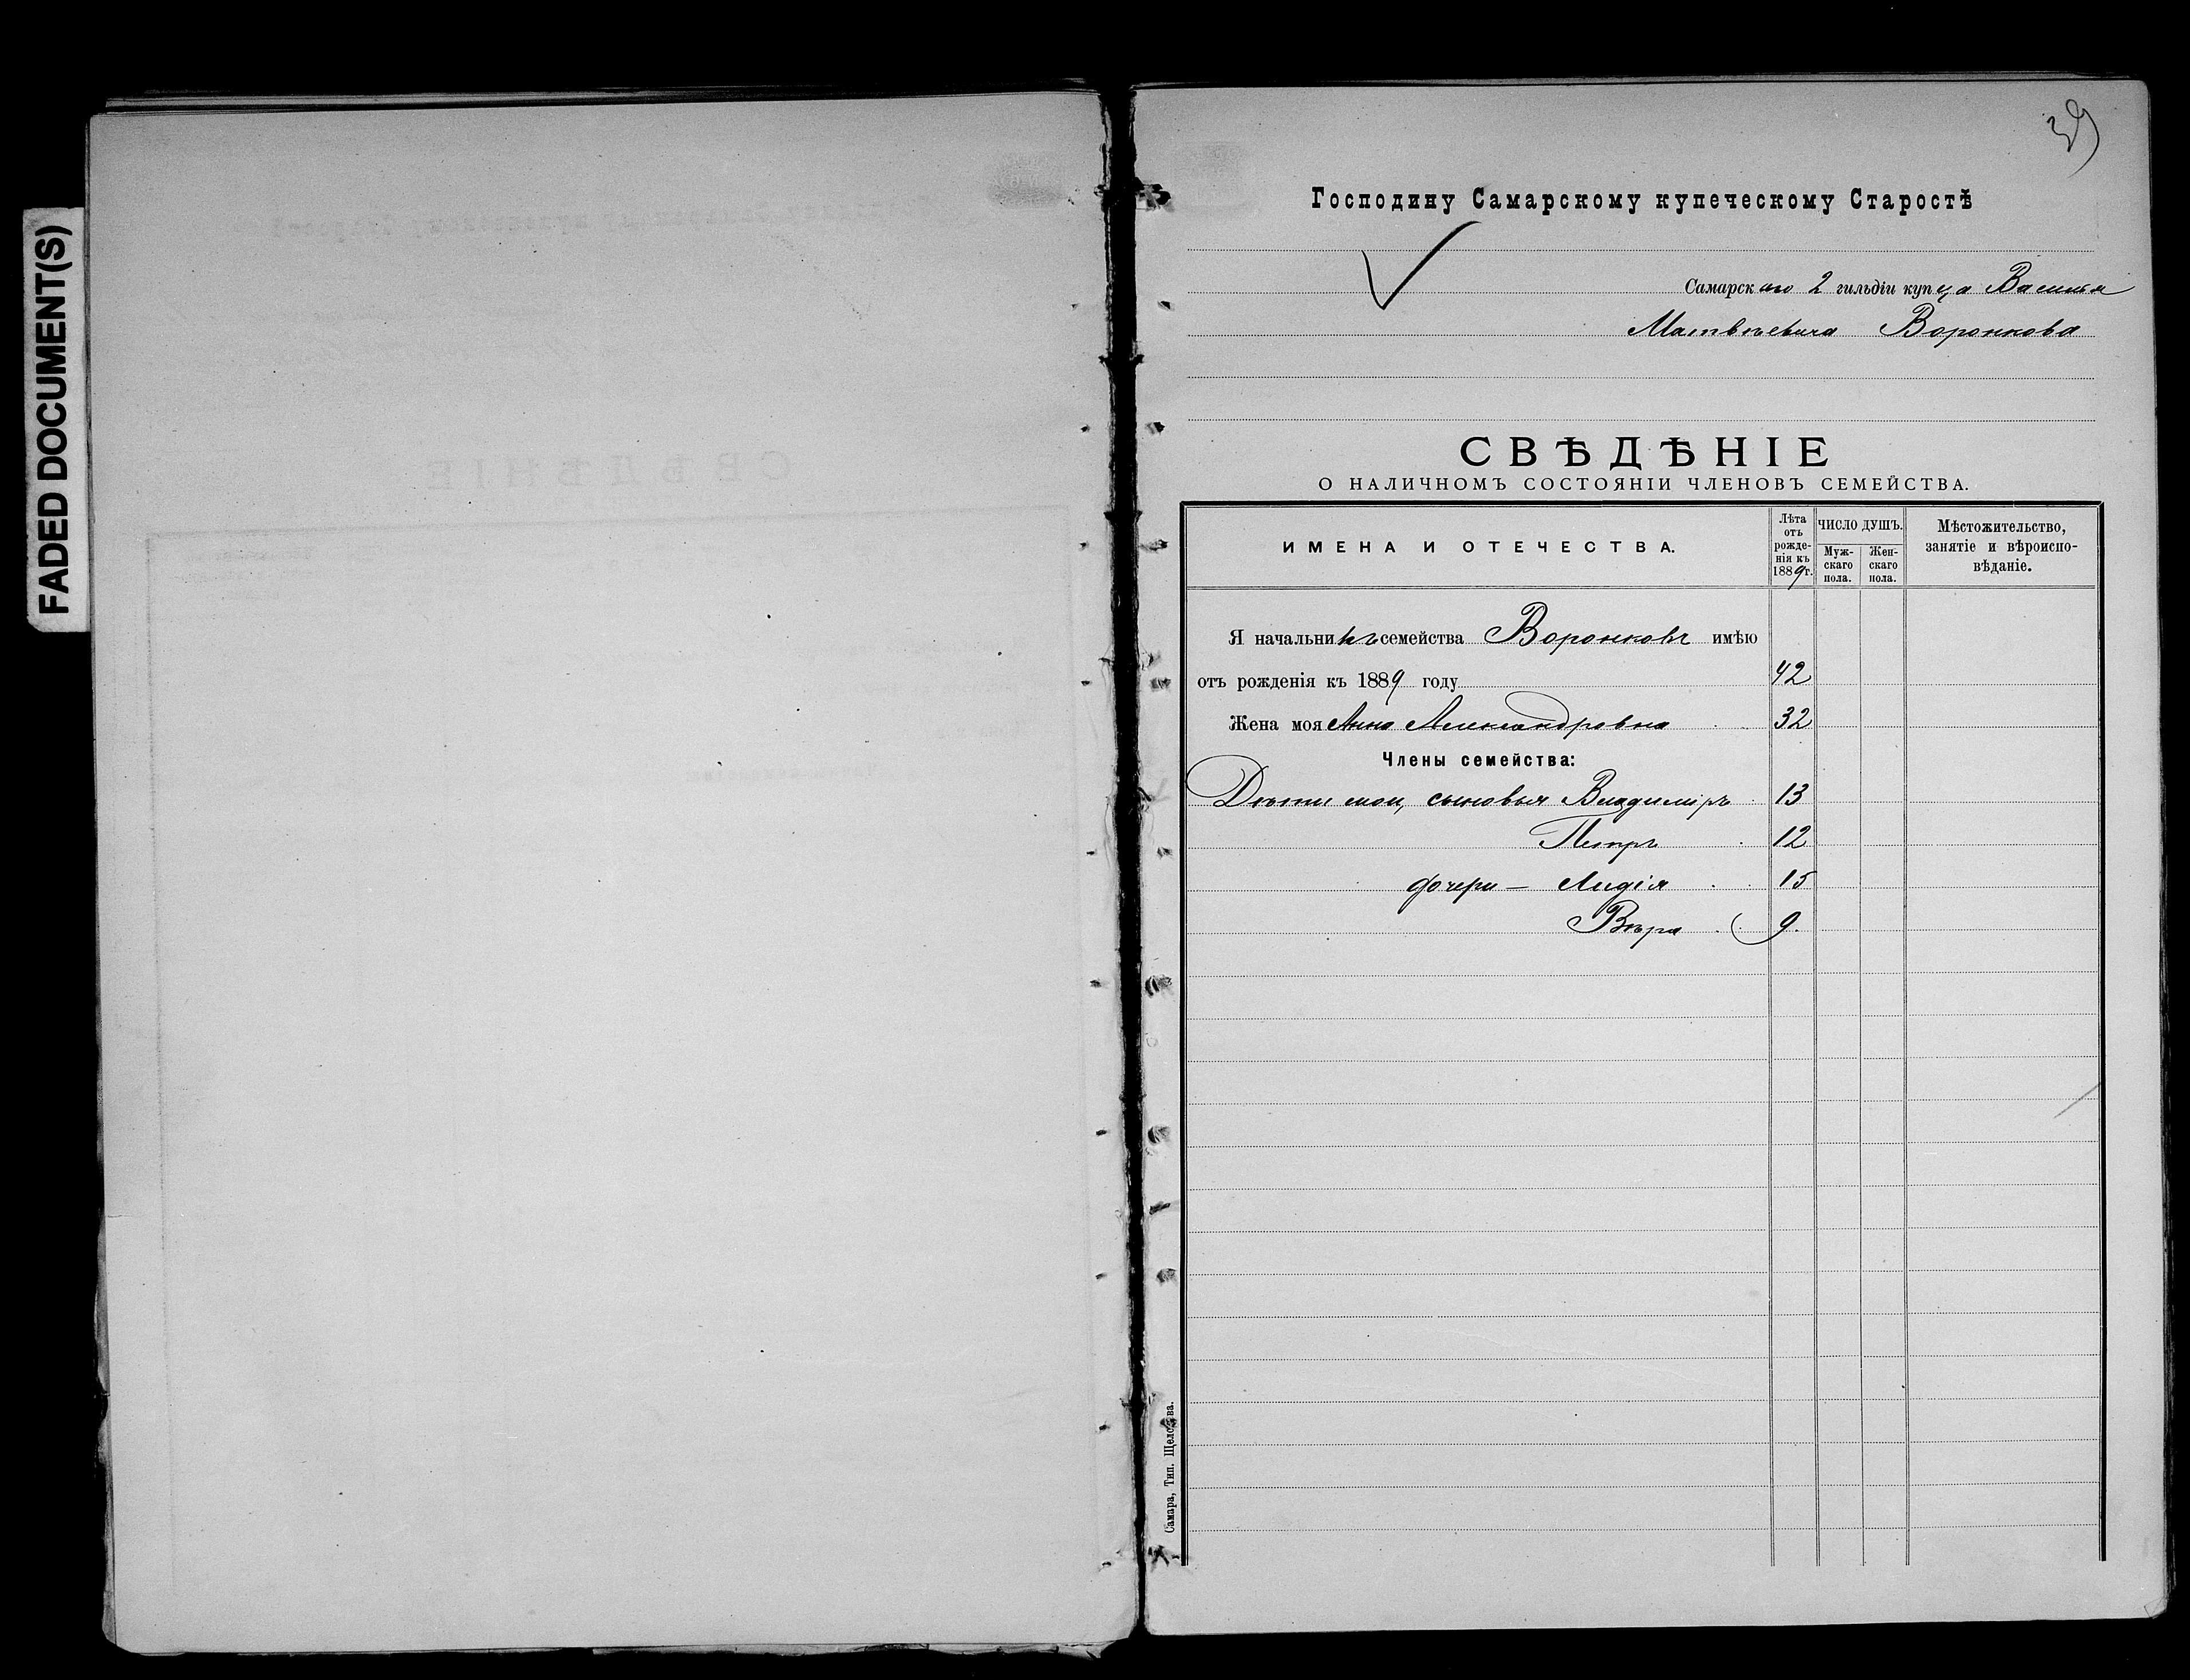 FADED DOCUMENT(S)
39
Господину Самарскому купеческому Старостѣ
Самарскаго 2 гильдіи купца Василья
Матвѣевича Воронкова
СВѢДѢНІЕ
О НАЛИЧНОМЪ СОСТОЯНІИ ЧЛЕНОВЪ СЕМЕЙСТВА.
ИМЕНА И ОТЕЧЕСТВА.
Лѣта
отъ
рожде-
нія къ
1889г.
ЧИСЛО ДУШЪ.
Муж-
скаго
пола.
Жен-
скаго
пола.
Мѣстожительство,
занятіе и вѣроиспо-
вѣданіе.
Я начальникъ семейства Воронковъ имѣю
отъ рожденія къ 1889 году 42
Жена моя Анна Александровна 32
Члены семейства:
Дѣти мои, сыновья Владиміръ 13
Петръ 12
дочери — Лидія 15
Вѣра 9.
Самара, Тип. Щелокова.